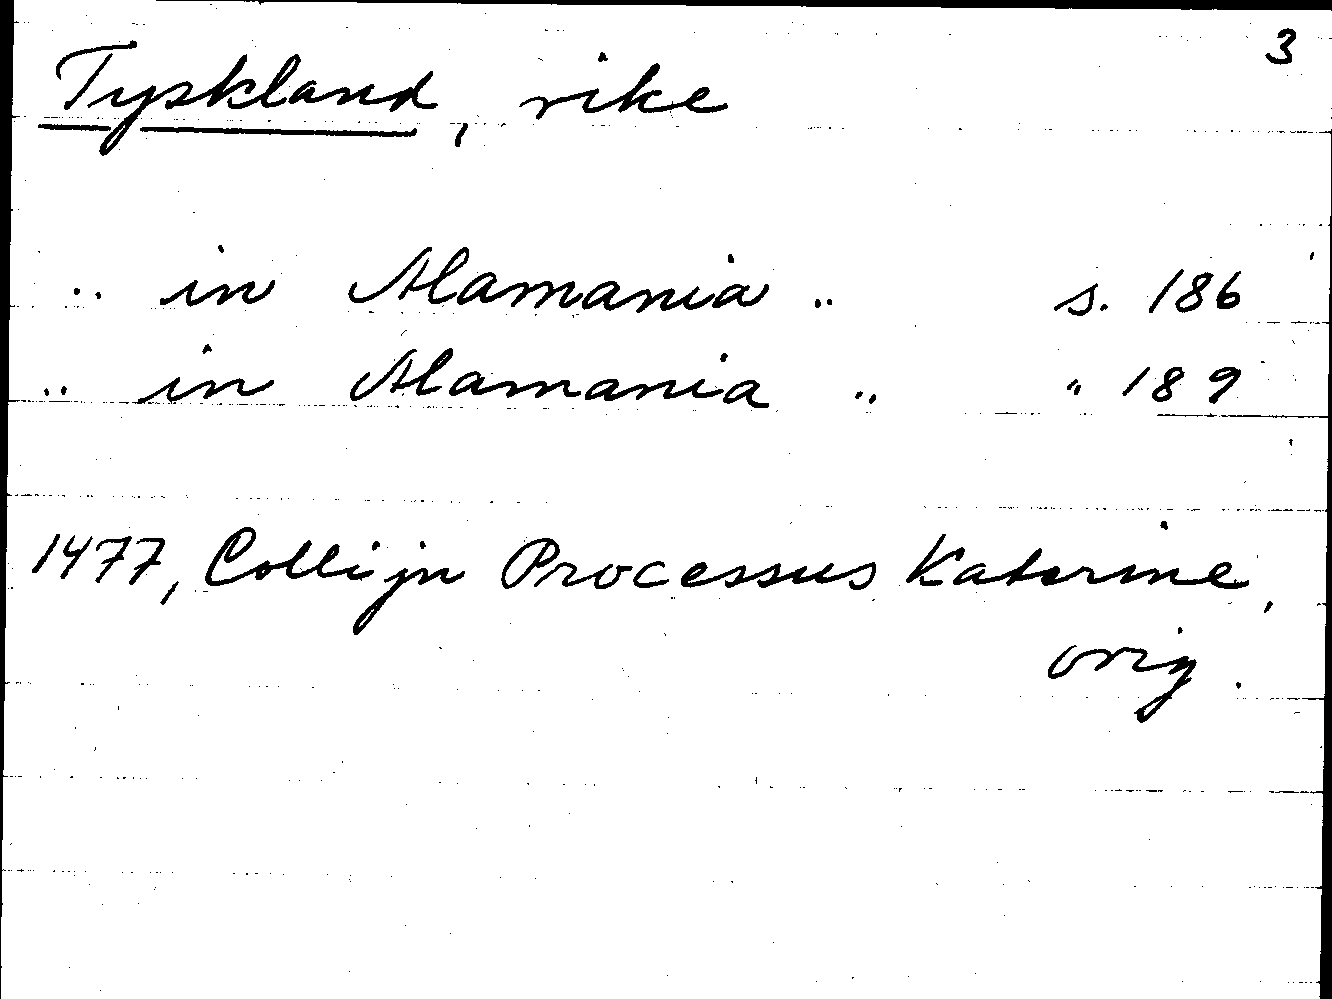 3
Tyskland, rike
.. in Alamania .. s. 186
.. in Alamania .. " 189
1477, Collijn Processus Katerine,
orig.